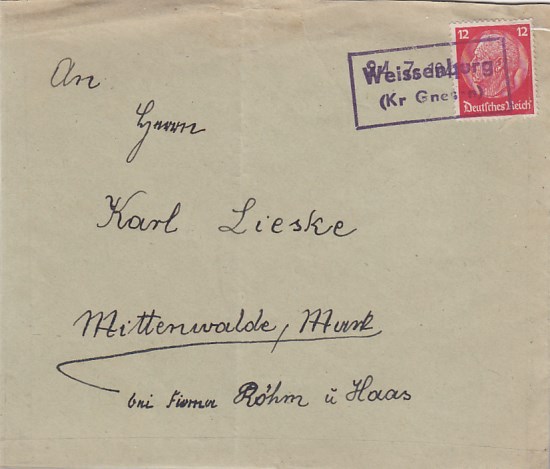 12 12
Weissenburg
(Kr Gnesen)
Deutsches Reich
An
Herrn
Karl Lieske
Mittenwalde, Mark
bei Firma Röhm u Haas